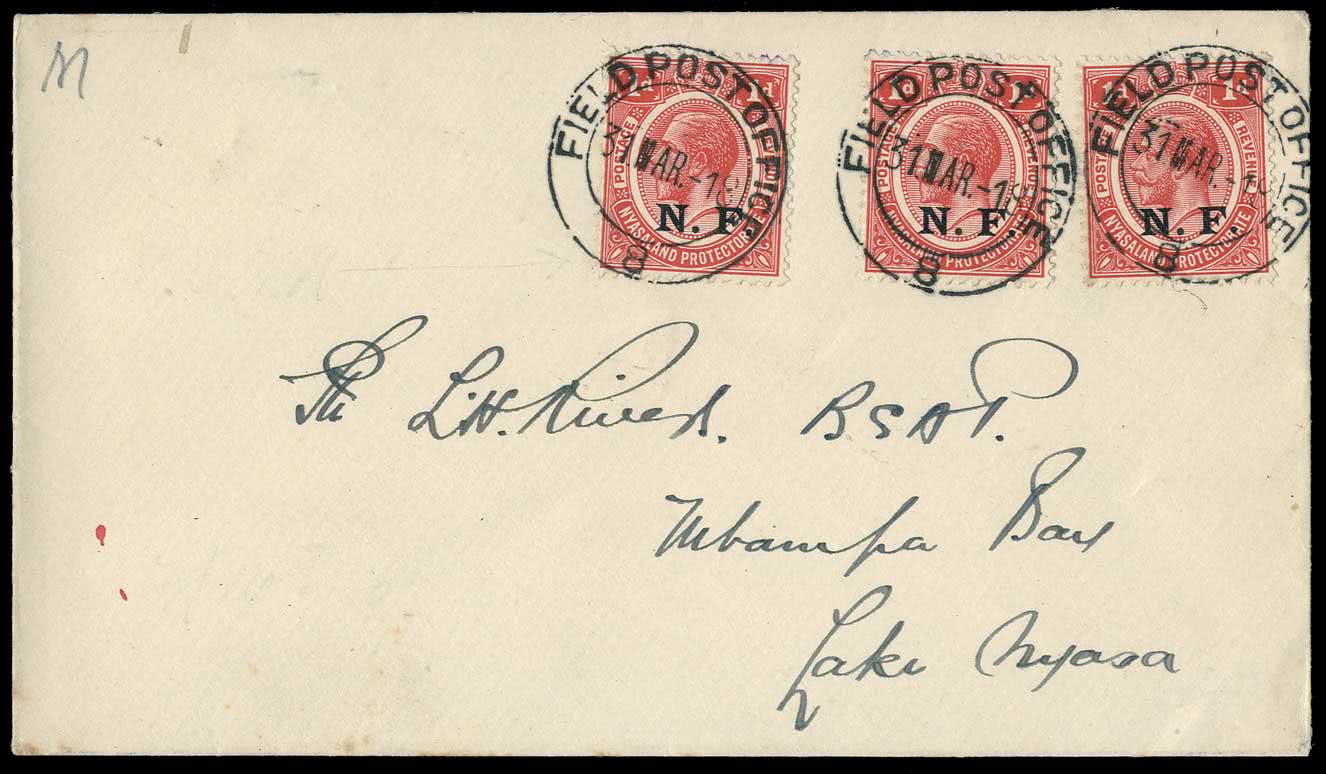 M
FIELD POST OFFICE
31 MAR.-18
8
1d 1d
POSTAGE REVENUE
N. F.
NYASALAND PROTECTORATE
FIELD POST OFFICE
31 MAR.-18
8
1d 1d
POSTAGE REVENUE
N. F.
NYASALAND PROTECTORATE
FIELD POST OFFICE
31 MAR.-18
8
1d 1d
POSTAGE REVENUE
N. F.
NYASALAND PROTECTORATE
L.H. Rivers. BSAP.
Mbampa Bay
Lake Nyasa